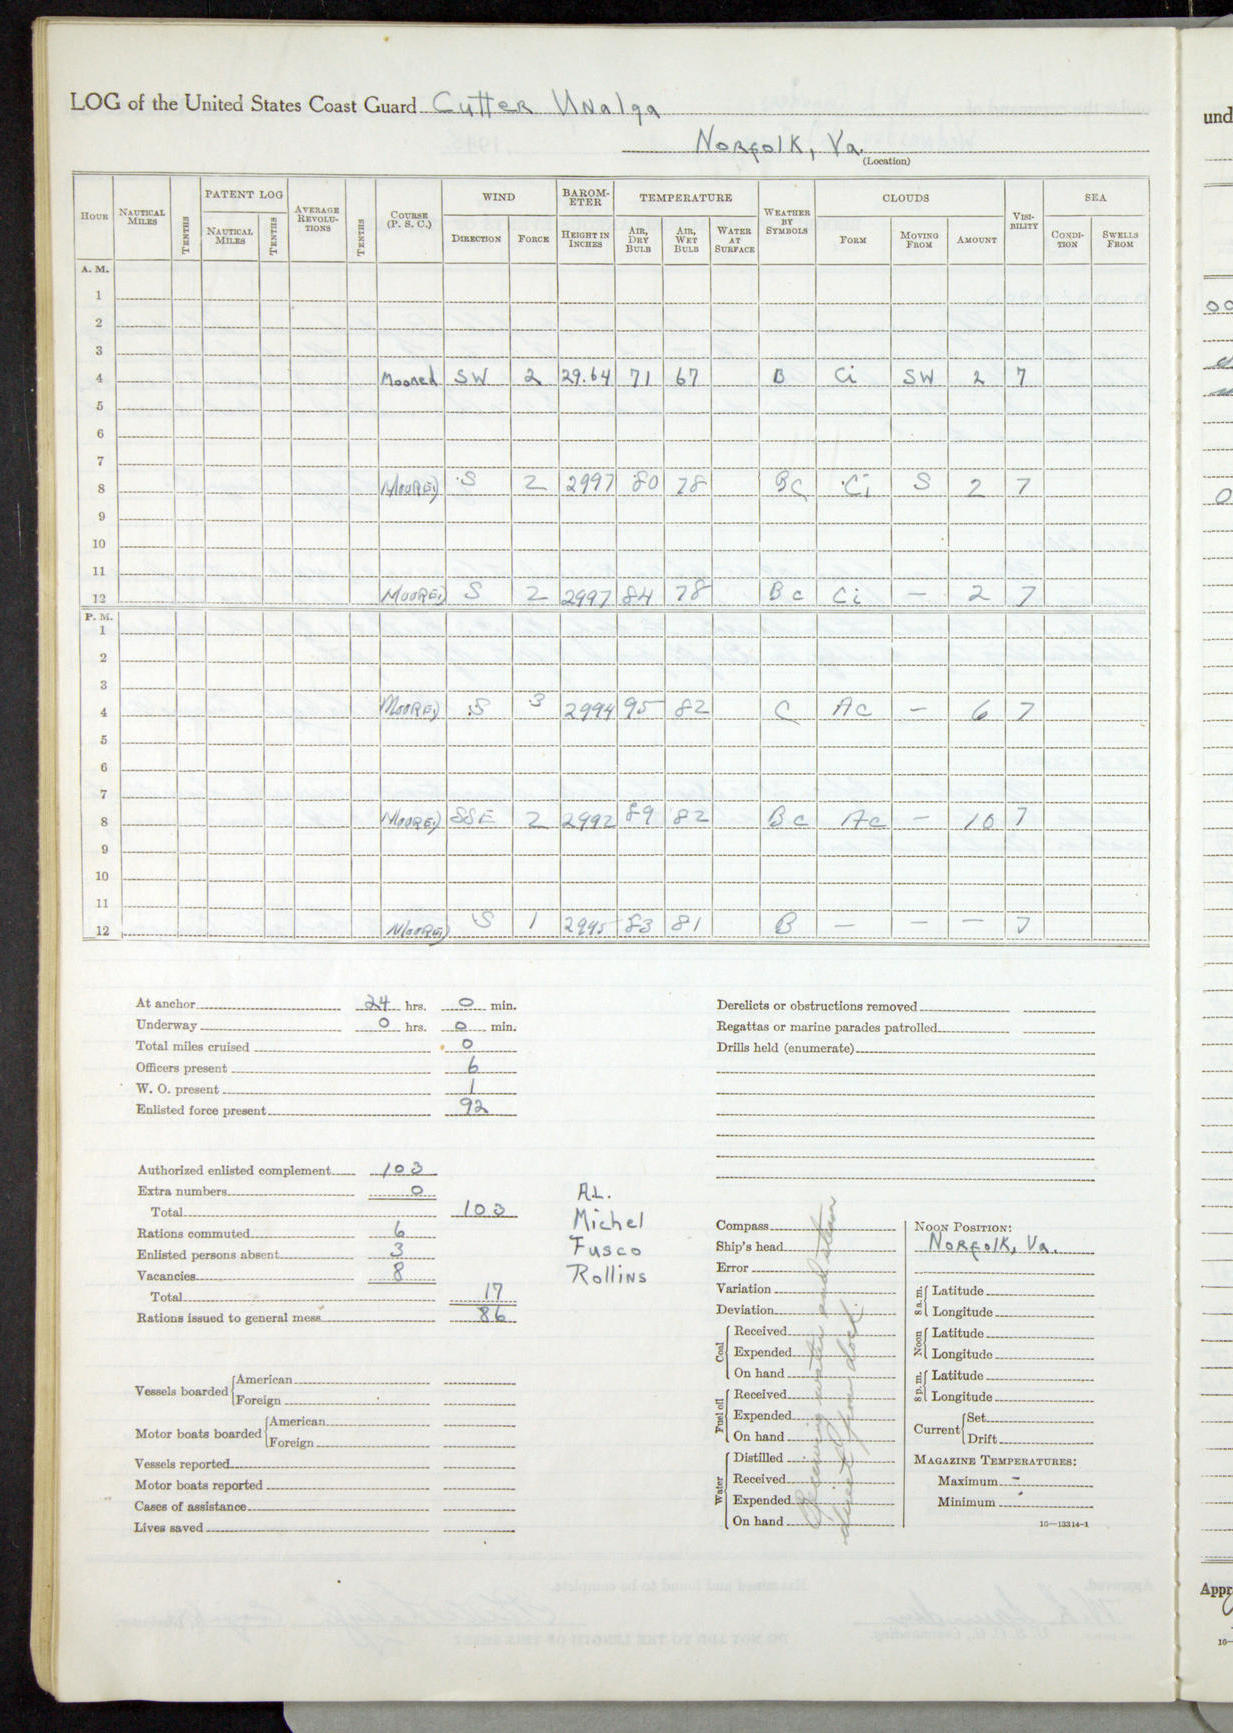 LOG of the United States Coast Guard Cutter Unalga
Norfolk, Va.
(Location)
HOUR NAUTICAL MILES TENTHS PATENT LOG NAUTICAL MILES TENTHS AVERAGE REVOLUTIONS TENTHS COURSE (P. S. C.) WIND DIRECTION FORCE BAROMETER HEIGHT IN INCHES TEMPERATURE AIR, DRY BULB AIR, WET BULB WATER AT SURFACE WEATHER BY SYMBOLS CLOUDS FORM MOVING FROM AMOUNT VISIBILITY SEA CONDITION SWELLS FROM
A. M.
1
2
3
4 Moored SW 2 29.64 71 67 B Ci SW 2 7
5
6
7
8 Moored S 2 2997 80 78 Bc Ci S 2 7
9
10
11
12 Moored S 2 2997 84 78 Bc Ci — 2 7
P. M.
1
2
3
4 Moored S 3 2994 95 82 C Ac — 6 7
5
6
7
8 Moored SSE 2 2992 89 82 Bc Ac — 10 7
9
10
11
12 Moored S 1 2995 83 81 B — — — 7
At anchor 24 hrs. 0 min.
Underway 0 hrs. 0 min.
Total miles cruised 0
Officers present 6
W. O. present 1
Enlisted force present 92
Authorized enlisted complement 103
Extra numbers 0
Total 103
Rations commuted 6
Enlisted persons absent 3
Vacancies 8
Total 17
Rations issued to general mess 86
A.L.
Michel
Fusco
Rollins
Vessels boarded American
Foreign
Motor boats boarded American
Foreign
Vessels reported
Motor boats reported
Cases of assistance
Lives saved
Derelicts or obstructions removed
Regattas or marine parades patrolled
Drills held (enumerate)
Compass
Ship's head
Error
Variation
Deviation
Coal Received
Expended
On hand
Fuel oil Received
Expended
On hand
Water Distilled
Received
Expended
On hand
Receiving water and steam
direct from dock.
NOON POSITION:
Norfolk, Va.
8 a.m. Latitude
Longitude
Noon Latitude
Longitude
8 p.m. Latitude
Longitude
Current Set
Drift
MAGAZINE TEMPERATURES:
Maximum –
Minimum
16—13314-1
und
Appr
16—